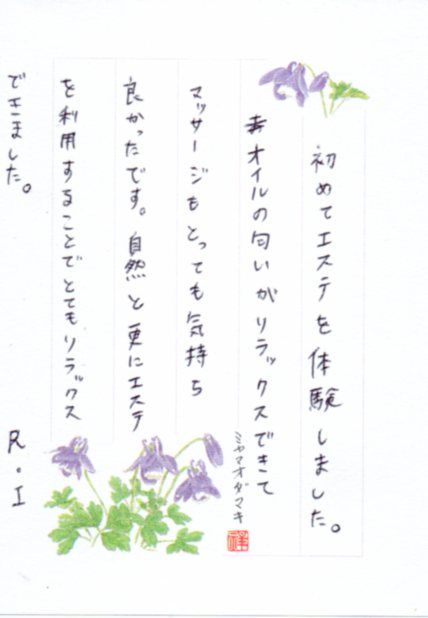 初めてエステを体験しました。
オイルの匂いがリラックスできて
マッサージもとっても気持ち
良かったです。自然と更にエステ
を利用することでとてもリラックス
できました。
R.I
ミヤマオダマキ